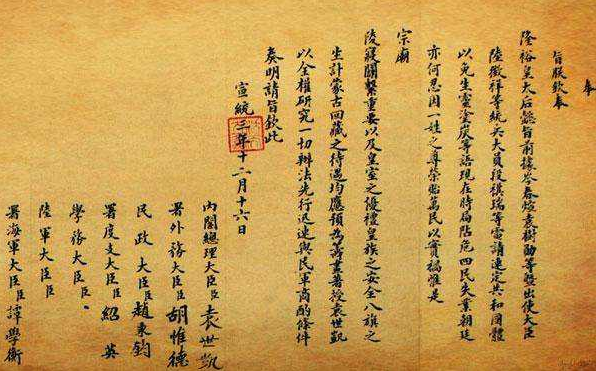 奉
旨朕欽奉
隆裕皇太后懿旨前據岑春煊袁樹勛等暨出使大臣
陸徵祥等統兵大員段祺瑞等電請速定共和國體
以免生靈塗炭等語現在時局阽危四民失業朝廷
亦何忍因一姓之尊榮貽萬民以實禍惟是
宗廟
陵寢關繫重要以及皇室之優禮皇族之安全八旗之
生計蒙古回藏之待遇均應預為籌畫著授袁世凱
以全權研究一切辦法先行迅速與民軍商酌條件
奏明請旨欽此
宣統三年十二月十六日
內閣總理大臣臣袁世凱
署外務大臣臣胡惟德
民政大臣臣趙秉鈞
署度支大臣臣紹英
學務大臣臣
陸軍大臣臣
署海軍大臣臣譚學衡